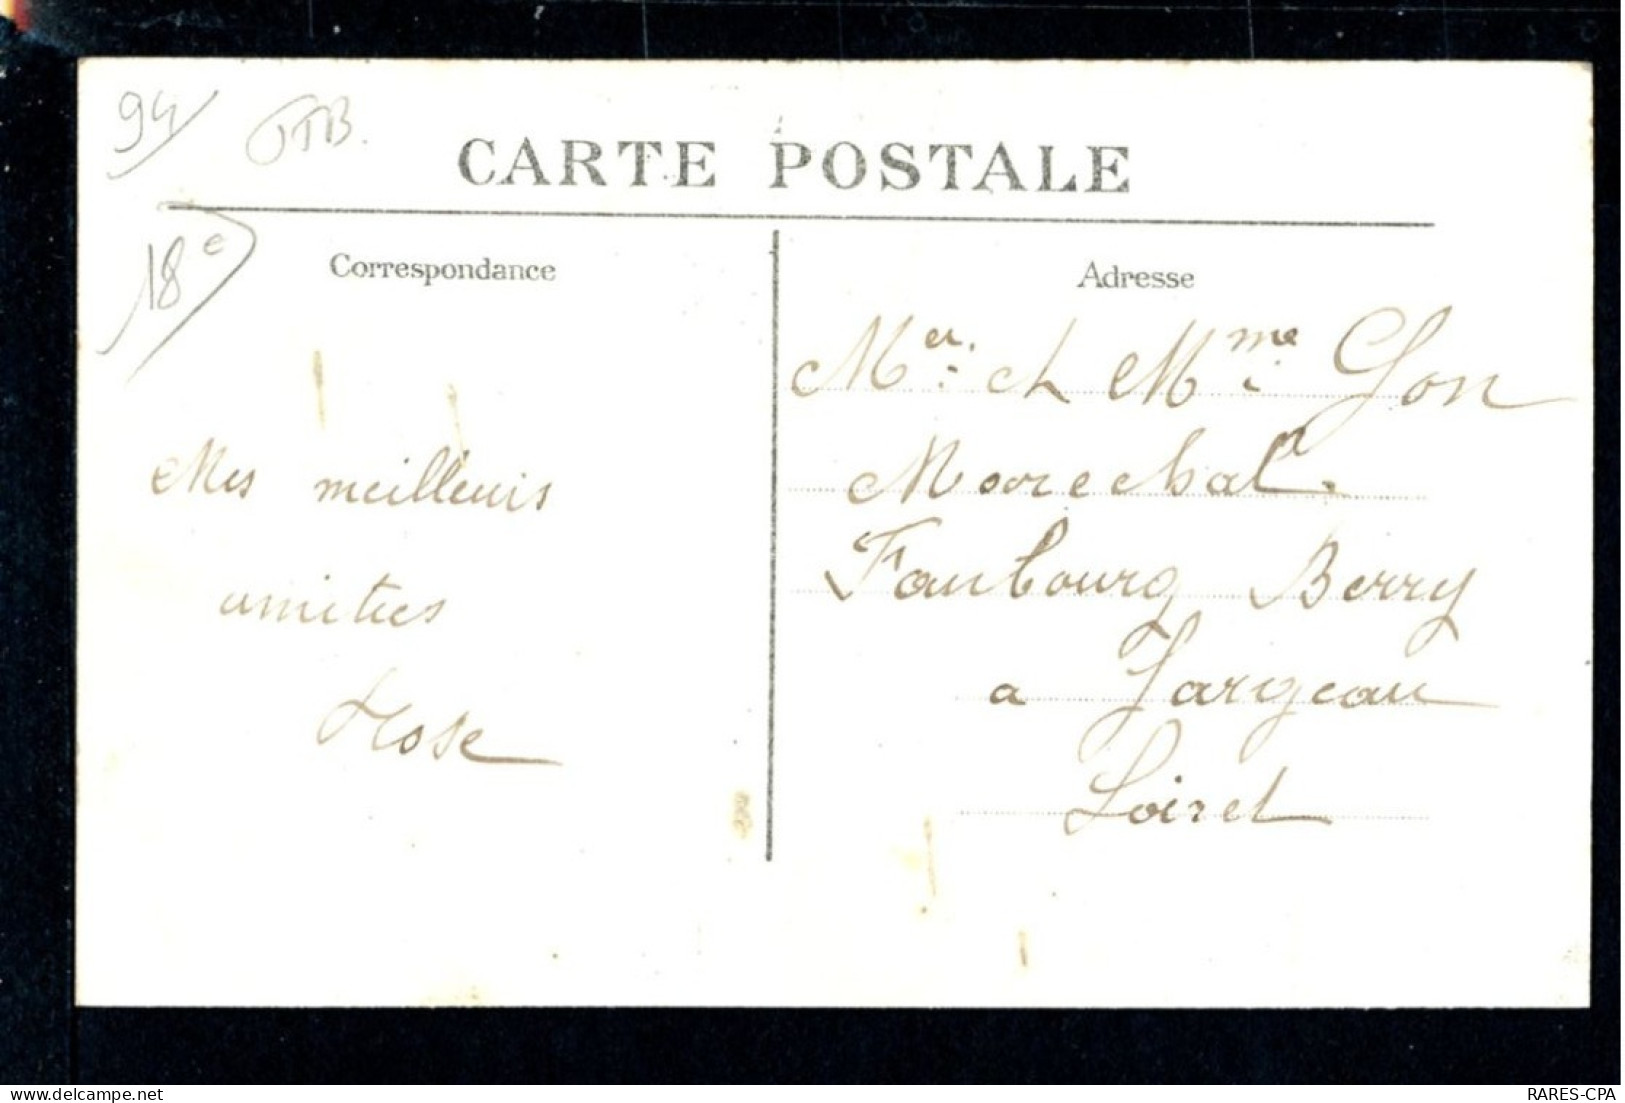 94
TTB.
CARTE POSTALE
18e
Correspondance
Adresse
Mes meilleurs
amitiés
Rose
Mer. et Mme Gon
Marechal.
Faubourg Berry
a Jargeau
Loiret
RARES-CPA